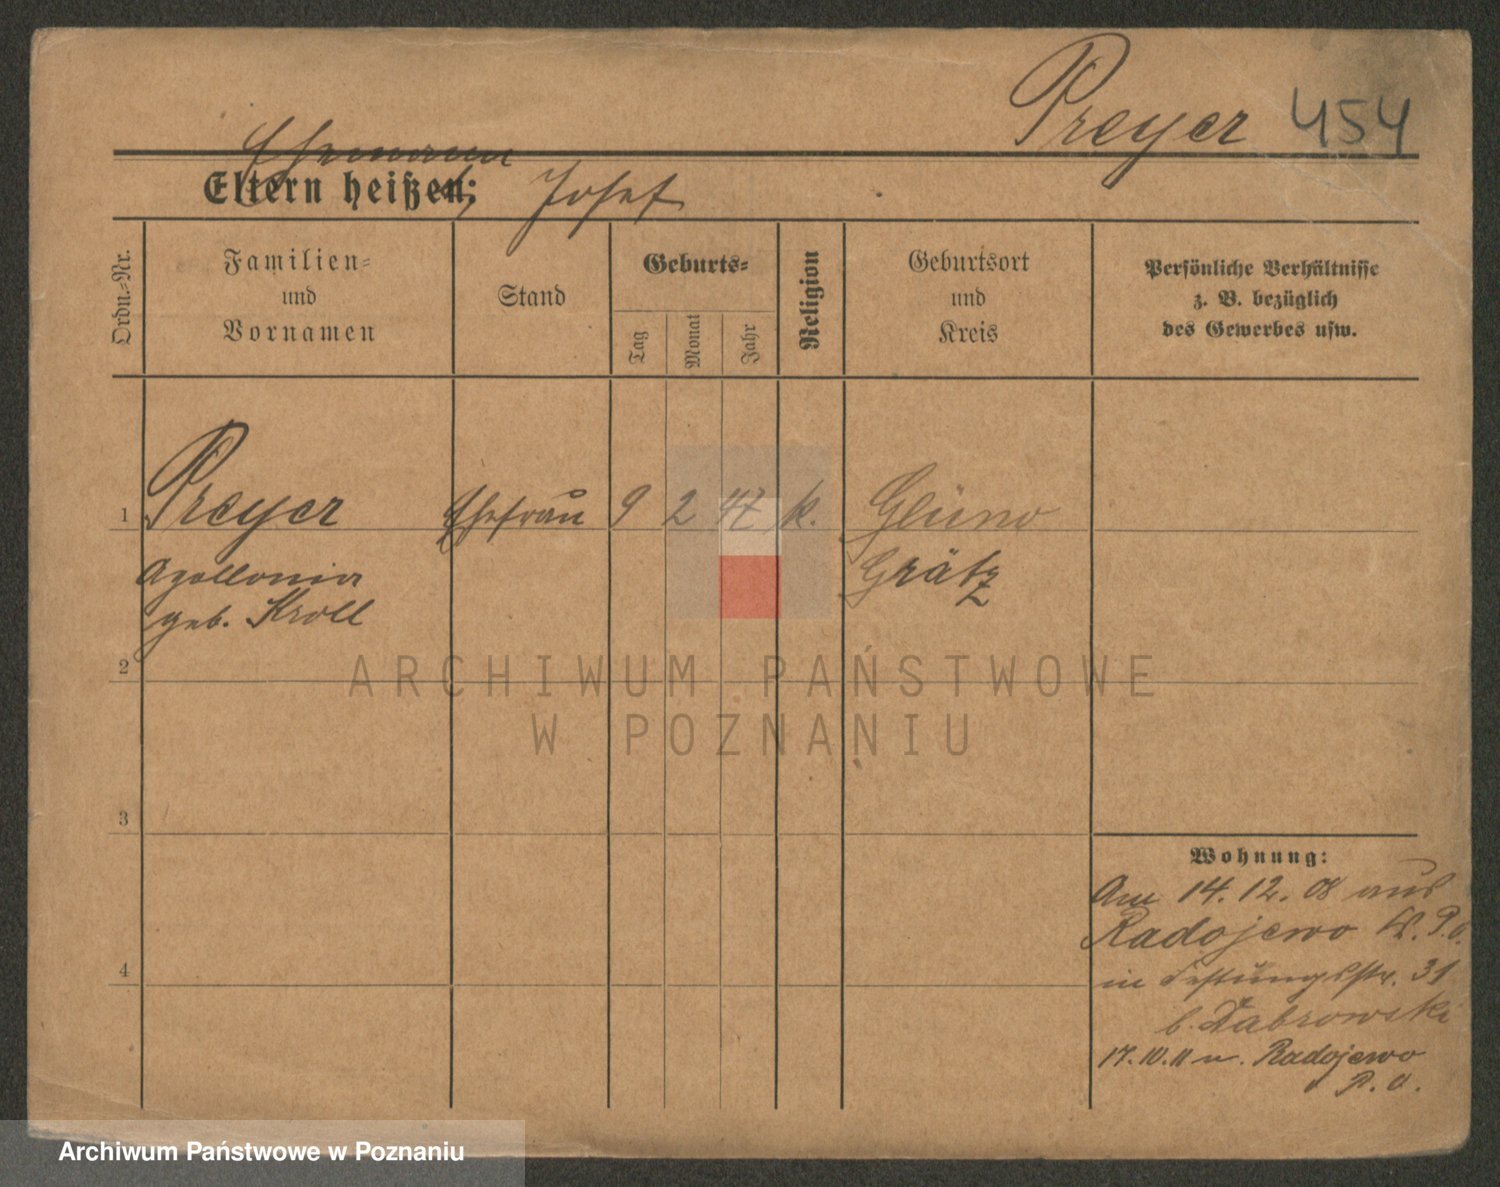 Preyer 454
Ehemann
Eltern heißen: Josef
Ordn.-Nr.
Familien-
und
Vornamen
Stand
Geburts-
Tag
Monat
Jahr
Religion
Geburtsort
und
Kreis
Persönliche Verhältnisse
z. B. bezüglich
des Gewerbes usw.
1 Preyer Ehefrau 9 2 47 k. Glüno
Apollonia Grätz
geb. Kroll
2
ARCHIWUM PAŃSTWOWE
W POZNANIU
3
Wohnung:
Am 14. 12. 08 aus
Radojewo K. P. O.
4
in Festungsstr. 31
b. Dabrowski
17. 10. 11 n. Radojewo
P. O.
Archiwum Państwowe w Poznaniu